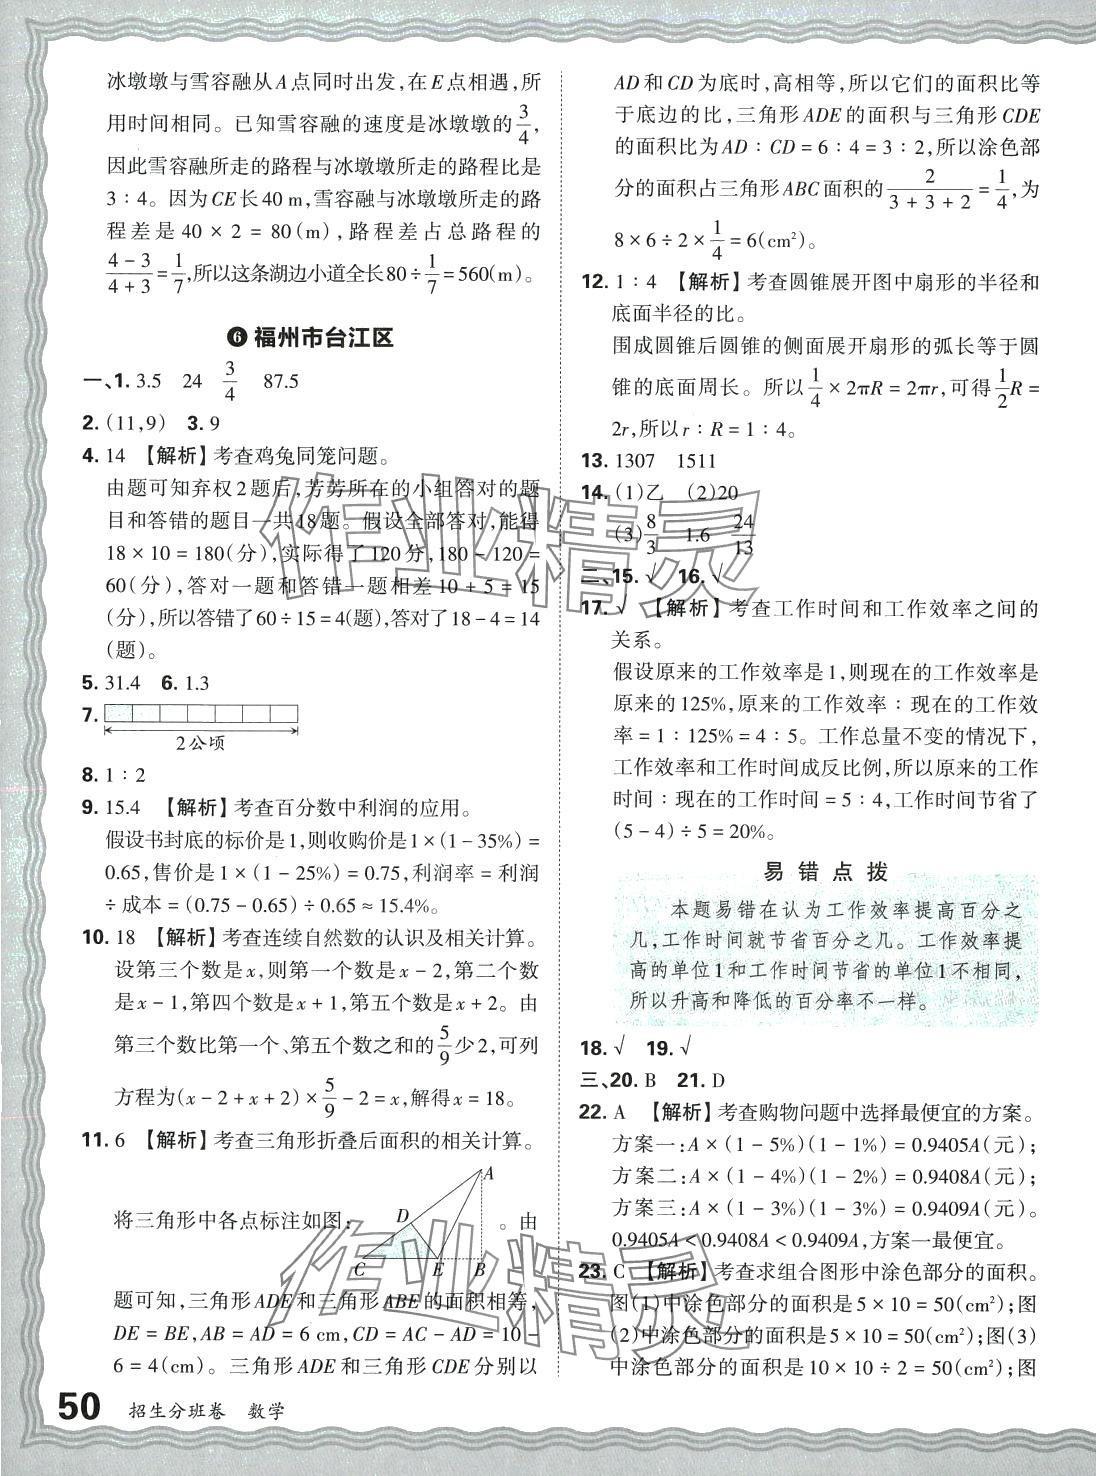 冰墩墩与雪容融从A点同时出发,在E点相遇,所
用时间相同。已知雪容融的速度是冰墩墩的3/4,
因此雪容融所走的路程与冰墩墩所走的路程比是
3∶4。因为CE长40 m,雪容融与冰墩墩所走的路
程差是40×2=80(m),路程差占总路程的
(4-3)/(4+3)=1/7,所以这条湖边小道全长80÷1/7=560(m)。
❻ 福州市台江区
一、1. 3.5 24 3/4 87.5
2. (11,9) 3. 9
4. 14 【解析】考查鸡兔同笼问题。
由题可知弃权2题后,芳芳所在的小组答对的题
目和答错的题目一共18题。假设全部答对,能得
18×10=180(分),实际得了120分,180-120=
60(分),答对一题和答错一题相差10+5=15
(分),所以答错了60÷15=4(题),答对了18-4=14
(题)。
5. 31.4 6. 1.3
7.
2公顷
8. 1∶2
9. 15.4 【解析】考查百分数中利润的应用。
假设书封底的标价是1,则收购价是1×(1-35%)=
0.65,售价是1×(1-25%)=0.75,利润率=利润
÷成本=(0.75-0.65)÷0.65≈15.4%。
10. 18 【解析】考查连续自然数的认识及相关计算。
设第三个数是x,则第一个数是x-2,第二个数
是x-1,第四个数是x+1,第五个数是x+2。由
第三个数比第一个、第五个数之和的5/9少2,可列
方程为(x-2+x+2)×5/9-2=x,解得x=18。
11. 6 【解析】考查三角形折叠后面积的相关计算。
A
将三角形中各点标注如图: D 。由
C E B
题可知,三角形ADE和三角形ABE的面积相等,
DE=BE,AB=AD=6 cm,CD=AC-AD=10-
6=4(cm)。三角形ADE和三角形CDE分别以
AD和CD为底时,高相等,所以它们的面积比等
于底边的比,三角形ADE的面积与三角形CDE
的面积比为AD∶CD=6∶4=3∶2,所以涂色部
分的面积占三角形ABC面积的2/(3+3+2)=1/4,为
8×6÷2×1/4=6(cm²)。
12. 1∶4 【解析】考查圆锥展开图中扇形的半径和
底面半径的比。
围成圆锥后圆锥的侧面展开扇形的弧长等于圆
锥的底面周长。所以1/4×2πR=2πr,可得1/2R=
2r,所以r∶R=1∶4。
13. 1307 1511
14. (1)乙 (2)20
(3)8/3 1.6 24/13
二、15. √ 16. √
17. √ 【解析】考查工作时间和工作效率之间的
关系。
假设原来的工作效率是1,则现在的工作效率是
原来的125%,原来的工作效率∶现在的工作效
率=1∶125%=4∶5。工作总量不变的情况下,
工作效率和工作时间成反比例,所以原来的工作
时间∶现在的工作时间=5∶4,工作时间节省了
(5-4)÷5=20%。
易错点拨
本题易错在认为工作效率提高百分之
几,工作时间就节省百分之几。工作效率提
高的单位1和工作时间节省的单位1不相同,
所以升高和降低的百分率不一样。
18. √ 19. √
三、20. B 21. D
22. A 【解析】考查购物问题中选择最便宜的方案。
方案一:A×(1-5%)(1-1%)=0.9405A(元);
方案二:A×(1-4%)(1-2%)=0.9408A(元);
方案三:A×(1-3%)(1-3%)=0.9409A(元)。
0.9405A<0.9408A<0.9409A,方案一最便宜。
23. C 【解析】考查求组合图形中涂色部分的面积。
图(1)中涂色部分的面积是5×10=50(cm²);图
(2)中涂色部分的面积是5×10=50(cm²);图(3)
中涂色部分的面积是10×10÷2=50(cm²);图
50 招生分班卷 数学
作业精灵
作业精灵